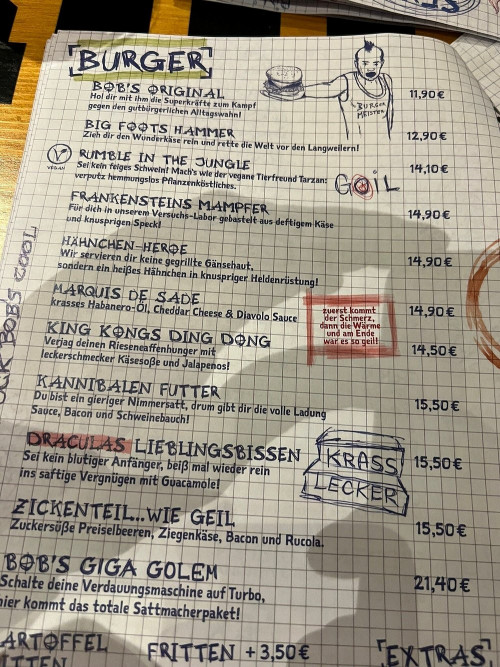 BURGER
BOB'S ORIGINAL
Hol dir mit ihm die Superkräfte zum Kampf
gegen den gutbürgerlichen Alltagswahn!
11,90 €
BURGER
MEISTER
BIG FOOTS HAMMER
Zieh dir den Wunderkäse rein und rette die Welt vor den Langweilern!
12,90 €
VEGAN
RUMBLE IN THE JUNGLE
Sei kein feiges Schwein! Mach's wie der vegane Tierfreund Tarzan:
verputz hemmungslos Pflanzenköstliches.
14,10 €
GOiL
FRANKENSTEINS MAMPFER
Für dich in unserem Versuchs-Labor gebastelt aus deftigem Käse
und knusprigen Speck!
14,90 €
HÄHNCHEN-HEROE
Wir servieren dir keine gegrillte Gänsehaut,
sondern ein heißes Hähnchen in knuspriger Heldenrüstung!
14,90 €
MARQUIS DE SADE
krasses Habanero-Öl, Cheddar Cheese & Diavolo Sauce
14,90 €
zuerst kommt
der Schmerz,
dann die Wärme
und am Ende
war es so geil!
KING KONGS DING DONG
Verjag deinen Rieseneaffenhunger mit
leckerschmecker Käsesoße und Jalapenos!
14,50 €
KANNIBALEN FUTTER
Du bist ein gieriger Nimmersatt, drum gibt dir die volle Ladung
Sauce, Bacon und Schweinebauch!
15,50 €
DRACULAS LIEBLINGSBISSEN
Sei kein blutiger Anfänger, beiß mal wieder rein
ins saftige Vergnügen mit Guacamole!
15,50 €
KRASS
LECKER
ZICKENTEIL..WIE GEIL
Zuckersüße Preiselbeeren, Ziegenkäse, Bacon und Rucola.
15,50 €
BOB'S GIGA GOLEM
Schalte deine Verdauungsmaschine auf Turbo,
hier kommt das totale Sattmacherpaket!
21,40 €
ARTOFFEL
FRITTEN +3,50€
EXTRAS
BOBS COOL